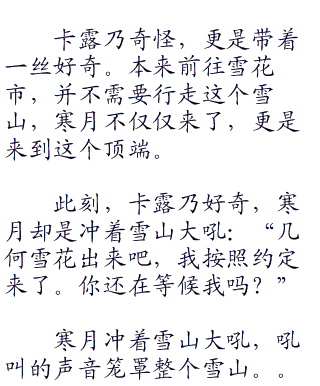 卡露乃奇怪，更是带着
一丝好奇。本来前往雪花
市，并不需要行走这个雪
山，寒月不仅仅来了，更是
来到这个顶端。
此刻，卡露乃好奇，寒
月却是冲着雪山大吼：“几
何雪花出来吧，我按照约定
来了。你还在等候我吗？”
寒月冲着雪山大吼，吼
叫的声音笼罩整个雪山。。